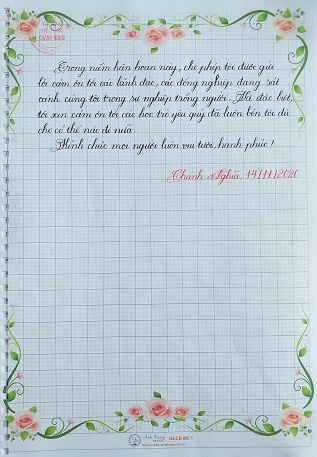 CHÁNH NGHĨA
Trong niềm hân hoan này, cho phép tôi được gửi
lời cảm ơn tới các lãnh đạo, các đồng nghiệp đang sát
cánh cùng tôi trong sự nghiệp trồng người. Và đặc biệt,
tôi xin cảm ơn tới các học trò yêu quý đã luôn bên tôi dù
cho có thế nào đi nữa.
Kính chúc mọi người luôn vui tươi, hạnh phúc!
Chánh Nghĩa, 14/11/2020
Anh Dương
GLCD MS 1